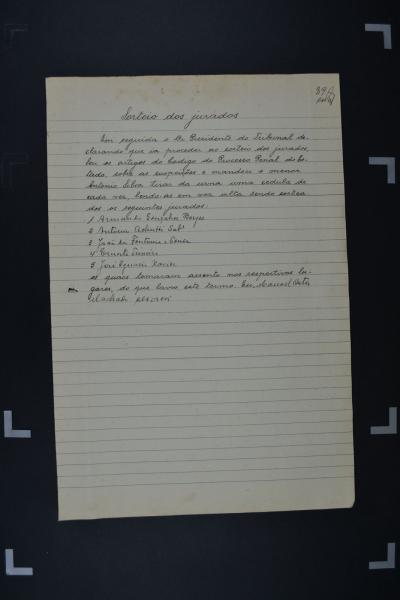 89
Sorteio dos jurados
Em seguida o Dr. Presidente do Tribunal de-
clarando que ia proceder ao sorteio dos jurados,
leu os artigos do Codigo do Processo Penal do Es-
tado, sobre as suspeições e mandou o menor
Antonio Silva tirar da urna uma cedula de
cada vez, lendo-as em voz alta sendo sortea-
dos os seguintes jurados:
1 Armando Gonçalves Borges
2 Arthur
3 José da Fontoura e
4 Ernesto
5 José Ignacio Xavier
os quaes tomaram assento nos respectivos lo-
gares, do que lavro este termo. Eu, Manoel
Machado escrevi